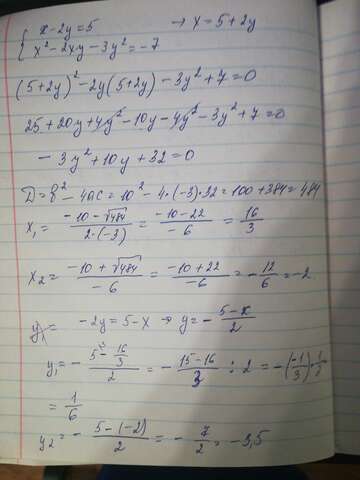 { x-2y=5 → x=5+2y
x²-2xy-3y²=-7
(5+2y)²-2y(5+2y)-3y²+7=0
25+20y+4y²-10y-4y²-3y²+7=0
-3y²+10y+32=0
D=b²-4ac=10²-4·(-3)·32=100+384=484
x₁=(-10-√484)/(2·(-3))=(-10-22)/(-6)=16/3
x₂=(-10+√484)/(-6)=(-10+22)/(-6)=-12/6=-2
y₁= -2y=5-x → y=-(5-x)/2
y₁=-(5-16/3)/2=-(15-16)/3:2=-(-1/3)·1/2
=1/6
y₂=-(5-(-2))/2=-7/2=-3,5